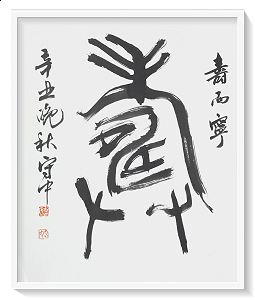 壽而寧
壽
辛丑晚秋守中